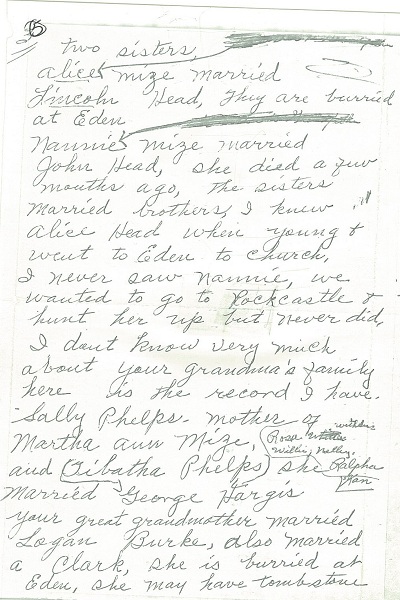 5
two sisters,
alice mize married
Lincoln Head, They are burried
at Eden
Nannie mize married
John Head, she died a few
mouths ago, The sisters
married brothers, I knew
alice Head when young &
went to Eden to church,
I never saw Nannie, we
wanted to go to Rockcastle &
hunt her up but never did,
I dont know very much
about your grandma's family
here is the record I have.
Sally Phelps - mother of
Martha ann Mize, (Rosa
Willie, Nelley,
and (Tibatha Phelps) she Ralpha
married George Hargis
your great grandmother married
Logan Burke, also married
a Clark, she is burried at
Eden, she may have tombstone